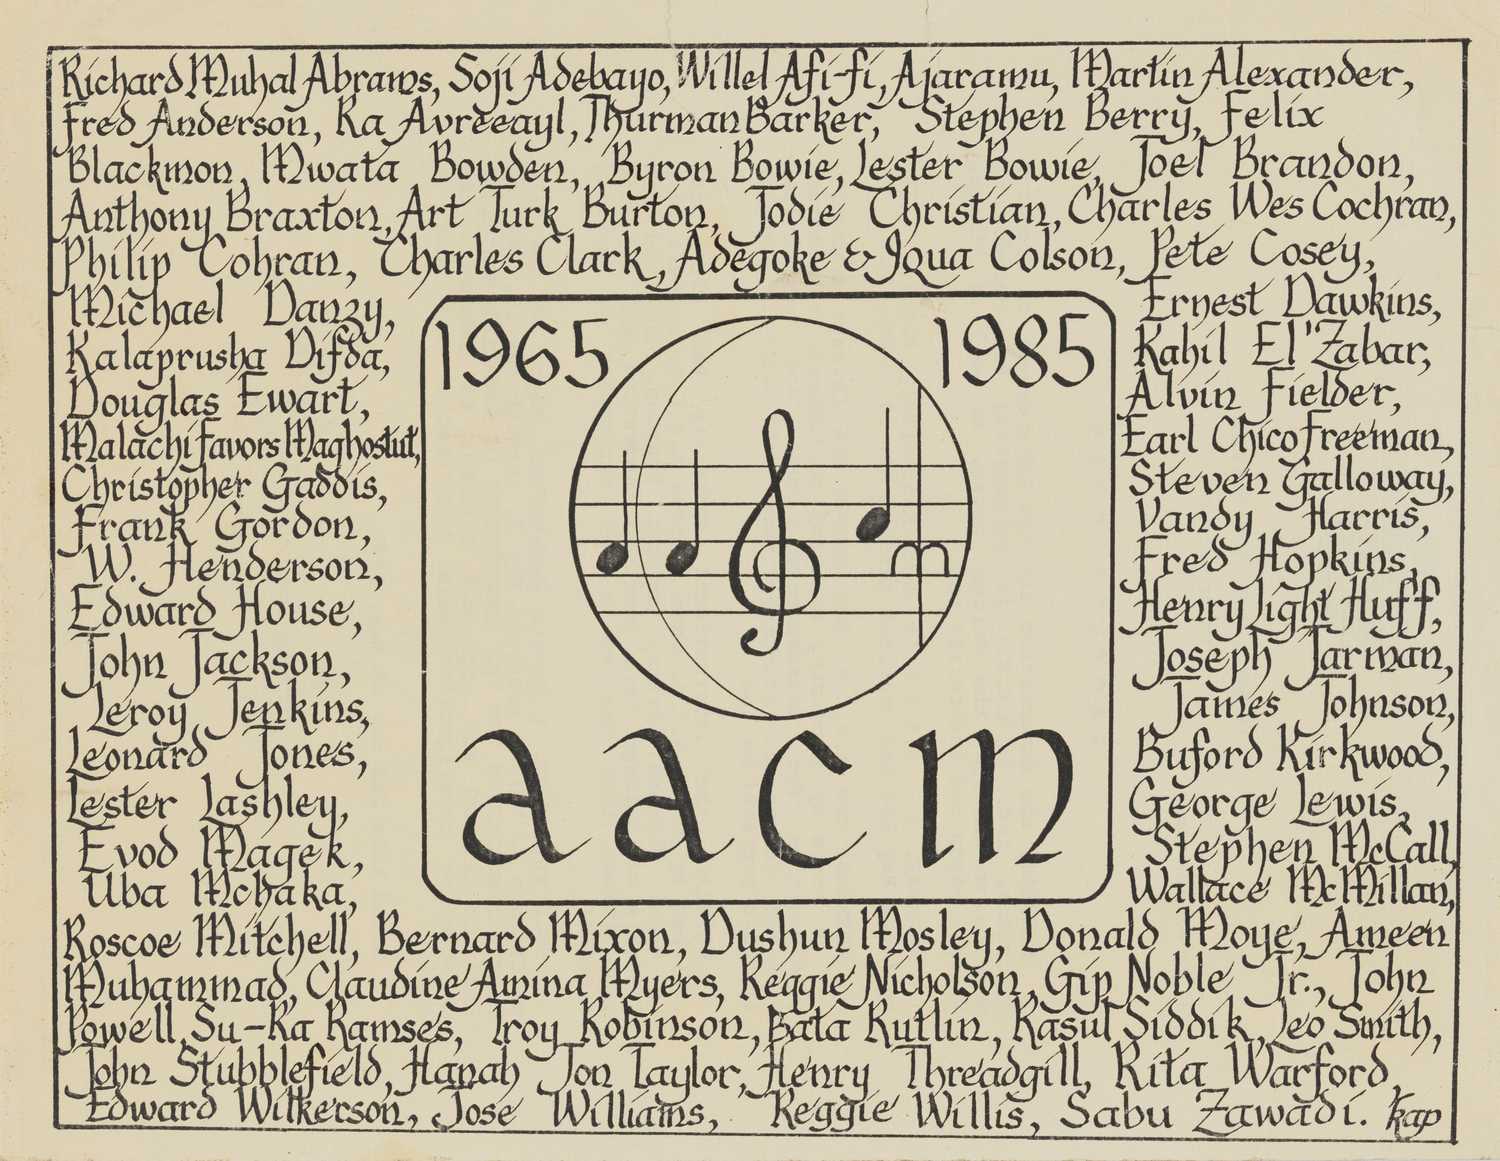 Richard Muhal Abrams, Soji Adebayo, Willel Afi-fi, Ajaramu, Martin Alexander,
Fred Anderson, Ka Avreeayl, Thurman Barker, Stephen Berry, Felix
Blackmon, Mwata Bowden, Byron Bowie, Lester Bowie, Joel Brandon,
Anthony Braxton, Art Turk Burton, Jodie Christian, Charles Wes Cochran,
Philip Cohran, Charles Clark, Adegoke & Iqua Colson, Pete Cosey,
Michael Danzy,
Kalaprusha Difda,
Douglas Ewart,
Malachi Favors Maghostut,
Christopher Gaddis,
Frank Gordon,
W. Henderson,
Edward House,
John Jackson,
Leroy Jenkins,
Leonard Jones,
Lester Lashley,
Evod Magek,
Uba Mchaka,
1965
1985
aacm
Ernest Dawkins,
Kahil El'Zabar,
Alvin Fielder,
Earl Chico Freeman,
Steven Galloway,
Vandy Harris,
Fred Hopkins,
Henry Light Huff,
Joseph Jarman,
James Johnson,
Buford Kirkwood,
George Lewis,
Stephen McCall,
Wallace McMillan,
Roscoe Mitchell, Bernard Mixon, Dushun Mosley, Donald Moye, Ameen
Muhammad, Claudine Amina Myers, Reggie Nicholson, Gip Noble Jr., John
Powell, Su-Ra Ramses, Troy Robinson, Bata Rutlin, Rasul Siddik, Leo Smith,
John Stubblefield, Hanah Jon Taylor, Henry Threadgill, Rita Warford,
Edward Wilkerson, Jose Williams, Reggie Willis, Sabu Zawadi. kap